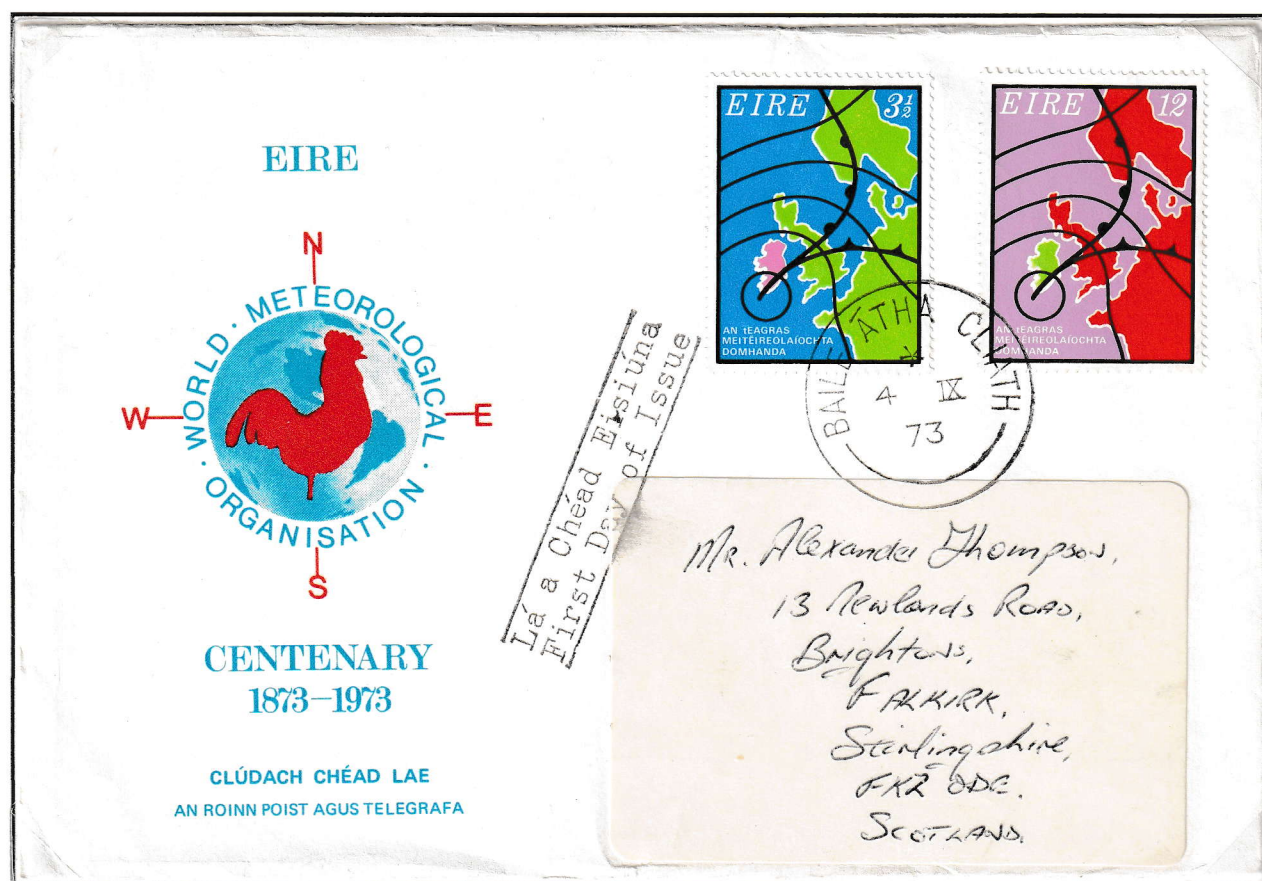 EIRE
N
WORLD · METEOROLOGICAL
· ORGANISATION ·
W
E
S
CENTENARY
1873–1973
CLÚDACH CHÉAD LAE
AN ROINN POIST AGUS TELEGRAFA
Lá a Chéad Eisiúna
First Day of Issue
EIRE 3½
AN tEAGRAS
MEITÉIREOLAÍOCHTA
DOMHANDA
EIRE 12
AN tEAGRAS
MEITÉIREOLAÍOCHTA
DOMHANDA
BAILE ÁTHA CLIATH
4 IX
73
Mr. Alexander Thompson,
13 Newlands Road,
Brightons,
FALKIRK,
Stirlingshire,
FK2 0DE.
SCOTLAND.